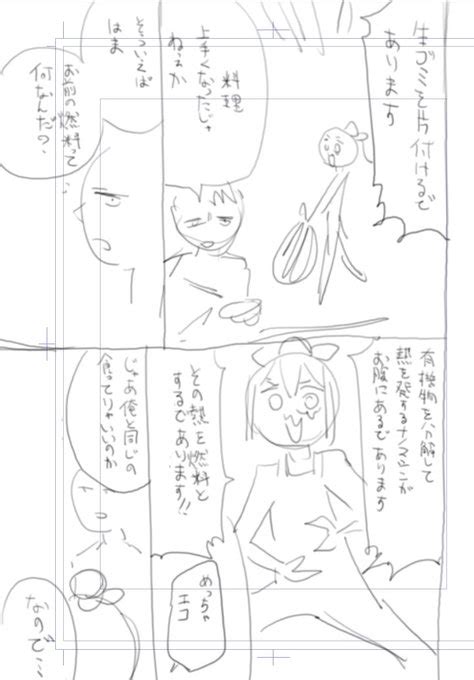 生ゴミを片付けるで
あります
料理
上手くなったじゃ
ねぇか
そういえば
はま
お前の燃料って
何なんだ?
有機物を分解して
熱を発するナノマシンが
お腹にあるであります
その熱を燃料と
するであります!!
めっちゃ
エコ
じゃあ俺と同じの
食ってりゃいいのか
なので…